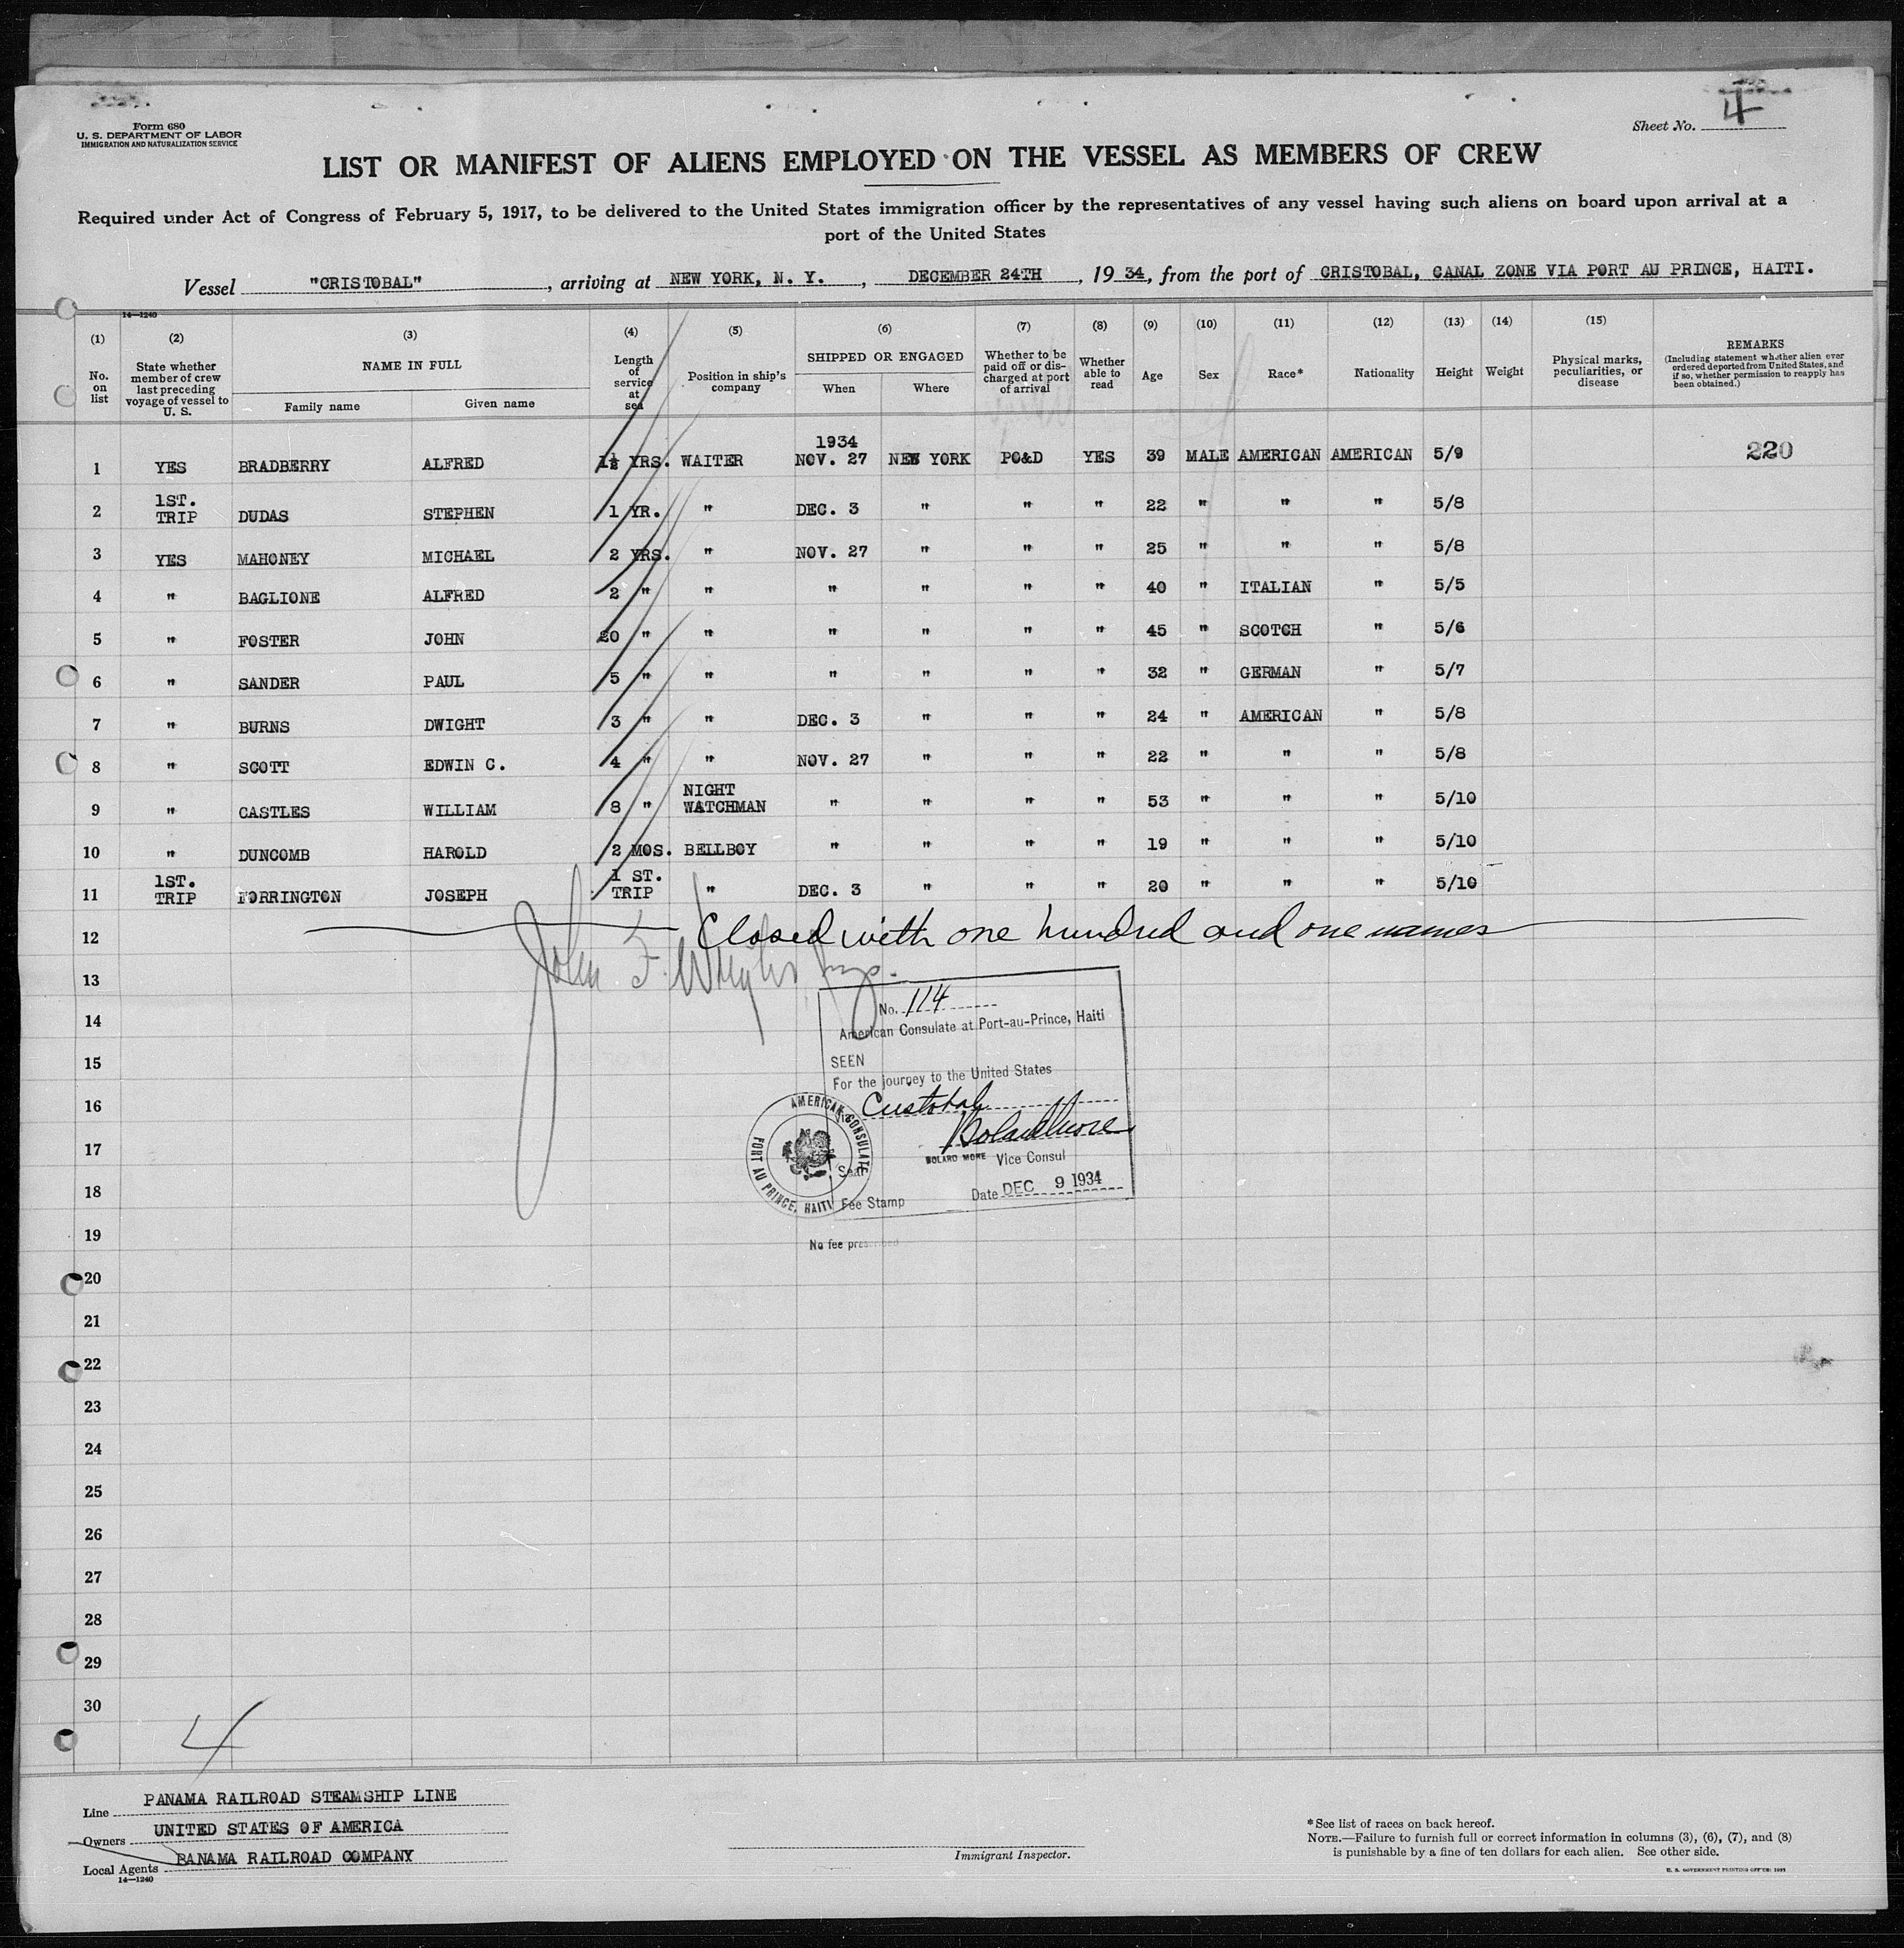 Form 680
U. S. DEPARTMENT OF LABOR
IMMIGRATION AND NATURALIZATION SERVICE
Sheet No. 4
LIST OR MANIFEST OF ALIENS EMPLOYED ON THE VESSEL AS MEMBERS OF CREW
Required under Act of Congress of February 5, 1917, to be delivered to the United States immigration officer by the representatives of any vessel having such aliens on board upon arrival at a
port of the United States
Vessel "CRISTOBAL", arriving at NEW YORK, N. Y., DECEMBER 24TH, 1934, from the port of CRISTOBAL, CANAL ZONE VIA PORT AU PRINCE, HAITI.
14—1240
(1) (2) (3) (4) (5) (6) (7) (8) (9) (10) (11) (12) (13) (14) (15)
No. on list
State whether member of crew last preceding voyage of vessel to U. S.
NAME IN FULL
Family name
Given name
Length of service at sea
Position in ship's company
SHIPPED OR ENGAGED
When
Where
Whether to be paid off or discharged at port of arrival
Whether able to read
Age
Sex
Race*
Nationality
Height
Weight
Physical marks, peculiarities, or disease
REMARKS
(Including statement whether alien ever ordered deported from United States, and if so, whether permission to reapply has been obtained.)
1 YES BRADBERRY ALFRED 1½ YRS. WAITER 1934 NOV. 27 NEW YORK PO&D YES 39 MALE AMERICAN AMERICAN 5/9 220
2 1ST. TRIP DUDAS STEPHEN 1 YR. " DEC. 3 " " " 22 " " " 5/8
3 YES MAHONEY MICHAEL 2 YRS. " NOV. 27 " " " 25 " " " 5/8
4 " BAGLIONE ALFRED 2 " " " " " " 40 " ITALIAN " 5/5
5 " FOSTER JOHN 20 " " " " " " 45 " SCOTCH " 5/6
6 " SANDER PAUL 5 " " " " " " 32 " GERMAN " 5/7
7 " BURNS DWIGHT 3 " " DEC. 3 " " " 24 " AMERICAN " 5/8
8 " SCOTT EDWIN C. 4 " " NOV. 27 " " " 22 " " " 5/8
9 " CASTLES WILLIAM 8 " NIGHT WATCHMAN " " " " 53 " " " 5/10
10 " DUNCOMB HAROLD 2 MOS. BELLBOY " " " " 19 " " " 5/10
11 1ST. TRIP FORRINGTON JOSEPH 1 ST. TRIP " DEC. 3 " " " 20 " " " 5/10
12 Closed with one hundred and one names
John F. Wright Insp.
13
No. 114
14
American Consulate at Port-au-Prince, Haiti
15
SEEN
For the journey to the United States
16
Cristobal
AMERICAN CONSULATE
PORT AU PRINCE, HAITI
17
BOLARD MORE Vice Consul
Seal
18
Date DEC 9 1934
Fee Stamp
19
No fee prescribed
20
21
22
23
24
25
26
27
28
29
30
4
Line PANAMA RAILROAD STEAMSHIP LINE
Owners UNITED STATES OF AMERICA
Local Agents PANAMA RAILROAD COMPANY
14—1240
Immigrant Inspector.
*See list of races on back hereof.
NOTE.—Failure to furnish full or correct information in columns (3), (6), (7), and (8)
is punishable by a fine of ten dollars for each alien. See other side.